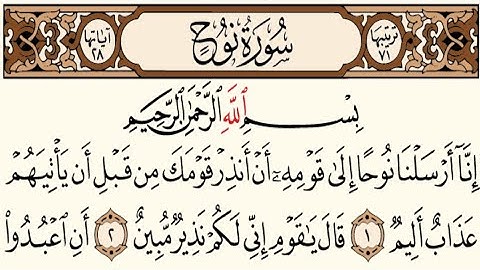 ترتيبها ٧١ سُورَةُ نُوحٍ آياتها ٢٨
بِسْمِ اللَّهِ الرَّحْمَٰنِ الرَّحِيمِ
إِنَّآ أَرْسَلْنَا نُوحًا إِلَىٰ قَوْمِهِۦٓ أَنْ أَنذِرْ قَوْمَكَ مِن قَبْلِ أَن يَأْتِيَهُمْ
عَذَابٌ أَلِيمٌ ١ قَالَ يَٰقَوْمِ إِنِّي لَكُمْ نَذِيرٌ مُّبِينٌ ٢ أَنِ ٱعْبُدُوا۟